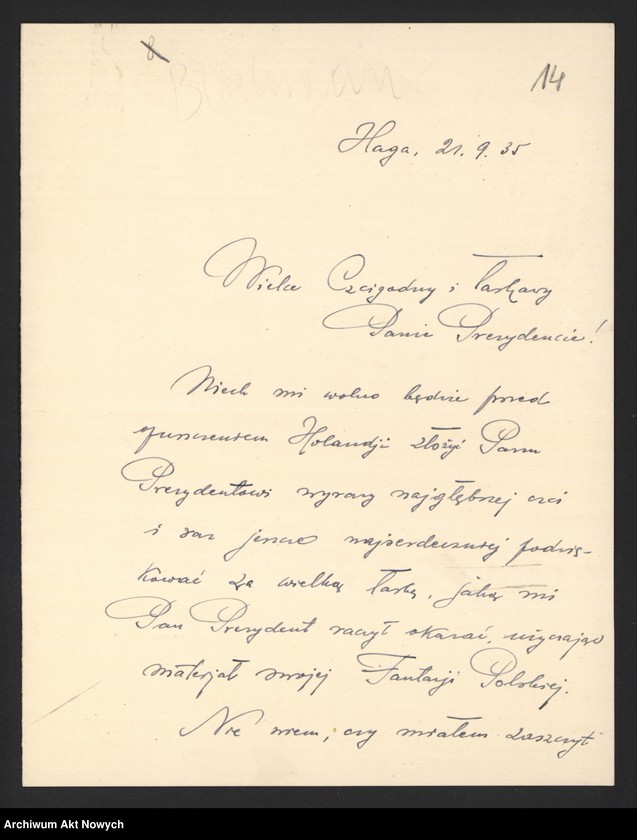 8
14
Haga, 21. 9. 35
Wielce Czcigodny i Łaskawy
Panie Prezydencie!
Niech mi wolno będzie przed
opuszczeniem Holandji złożyć Panu
Prezydentowi wyrazy najgłębszej czci
i raz jeszcze najserdeczniej podzię-
kować za wielką łaskę, jaką mi
Pan Prezydent raczył okazać, użyczając
materjał swojej Fantazji Polskiej.
Nie wiem, czy miałem zaszczyt
Archiwum Akt Nowych